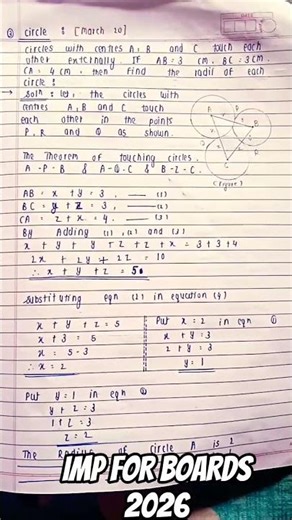 DATE
② circle : [March 20]
circles with centres A, B and C touch each
other externally. If AB = 3 cm. BC = 3 cm.
CA = 4 cm. then find the radii of each
circle :
→ Soln : let : the circles with
centres A, B and C touch
each other in the points
P, R and Q as shown.
(Figure)
The Theorem of touching circles.
A - P - B & A - Q - C & B - R - C.
AB = x + y = 3. —— (1)
BC = y + z = 3, —— (2)
CA = z + x = 4. —— (3)
By Adding (1), (2) and (3)
x + y + y + z + z + x = 3 + 3 + 4
2x + 2y + 2z = 10
∴ x + y + z = 5
Substituting eqn (2) in equation (4)
x + y + z = 5
x + 3 = 5
x = 5 - 3
∴ x = 2
Put x = 2 in eqn ①
x + y = 3
2 + y = 3
y = 1
Put y = 1 in eqn ②
y + z = 3
1 + z = 3
z = 2
The Radius of circle A is 2
IMP FOR BOARDS
2026